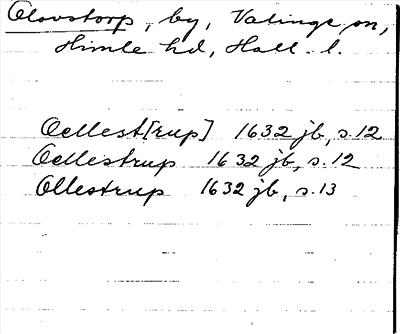 Olovstorp, by, Valinge sn,
Himle hd, Hall. l.
Oellest[rup] 1632 jb, s. 12
Oellestrup 1632 jb, s. 12
Ollestrup 1632 jb, s. 13